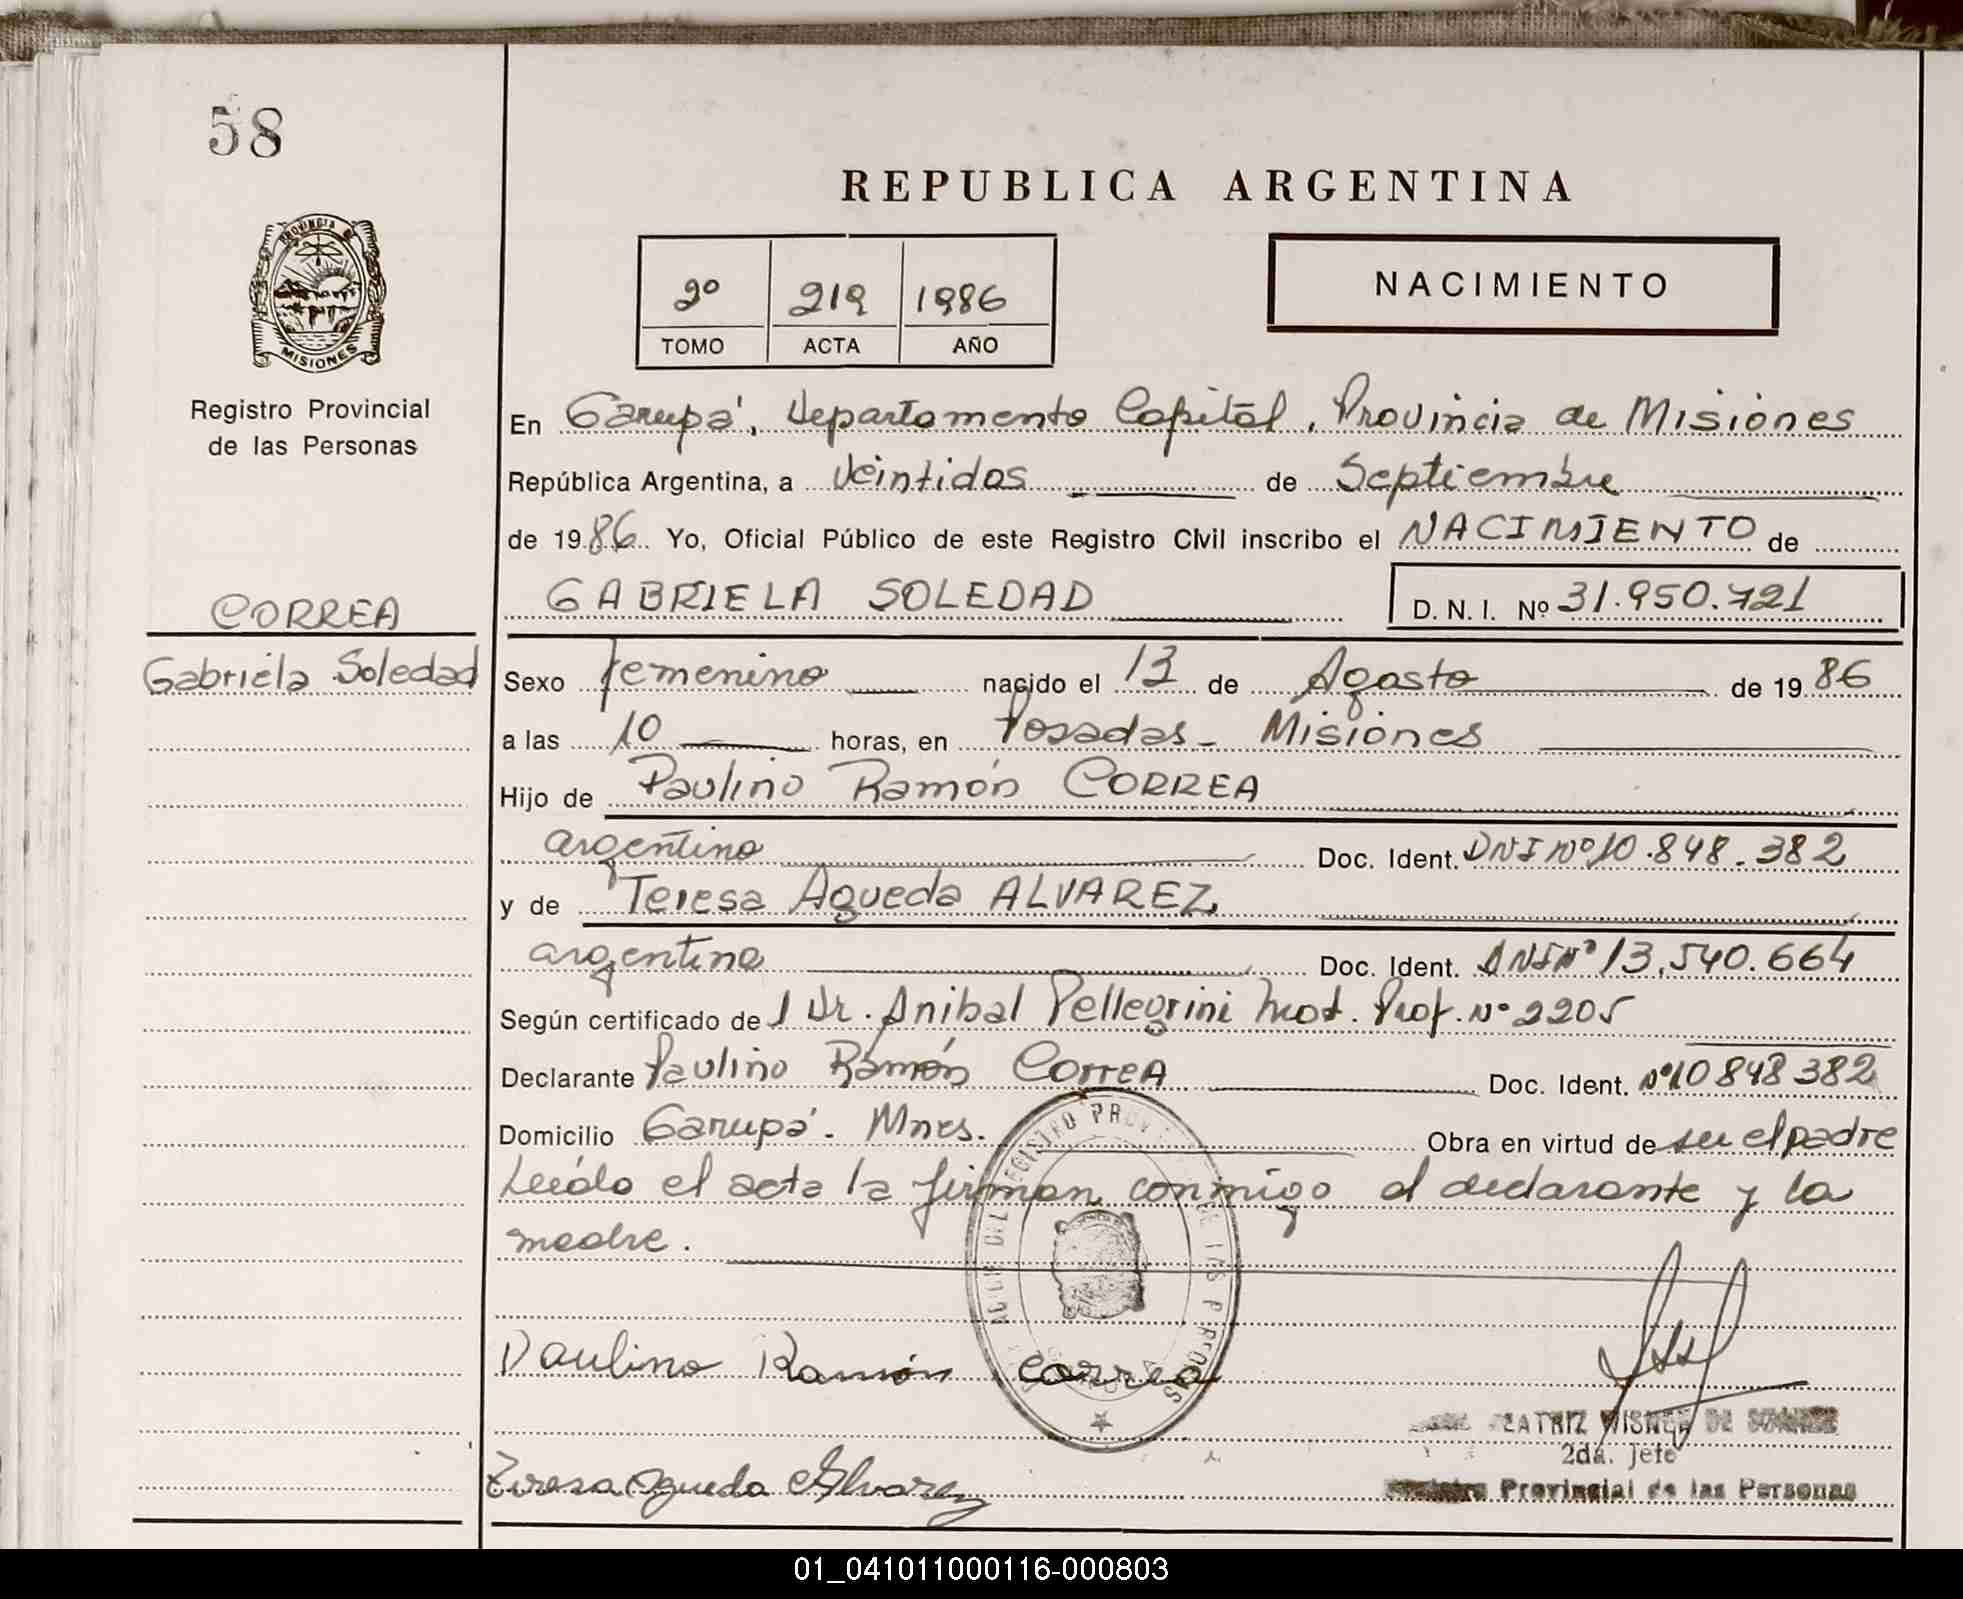 58
REPUBLICA ARGENTINA
PROVINCIA DE
MISIONES
2º 219 1986
TOMO ACTA AÑO
NACIMIENTO
Registro Provincial
de las Personas
En Garupá, Departamento Capital, Provincia de Misiones
República Argentina, a Veintidos de Septiembre
de 1986 Yo, Oficial Público de este Registro Civil inscribo el NACIMIENTO de
GABRIELA SOLEDAD D. N. I. Nº 31.950.721
CORREA
Gabriela Soledad
Sexo femenino nacido el 13 de Agosto de 1986
a las 10 horas, en Posadas - Misiones
Hijo de Paulino Ramón CORREA
argentino Doc. Ident. DNI Nº 10.848.382
y de Teresa Agueda ALVAREZ
argentina Doc. Ident. DNI Nº 13.540.664
Según certificado del Dr. Anibal Pellegrini Mat. Prof. Nº 2205
Declarante Paulino Ramón Correa Doc. Ident. Nº 10848382
Domicilio Garupá - Mnes. Obra en virtud de ser el padre
Leído el acta la firman conmigo el declarante y la
madre.
Paulino Ramón Correa
BEATRIZ DE
2da. Jefe
Teresa Agueda Alvarez
Registro Provincial de las Personas
01_041011000116-000803